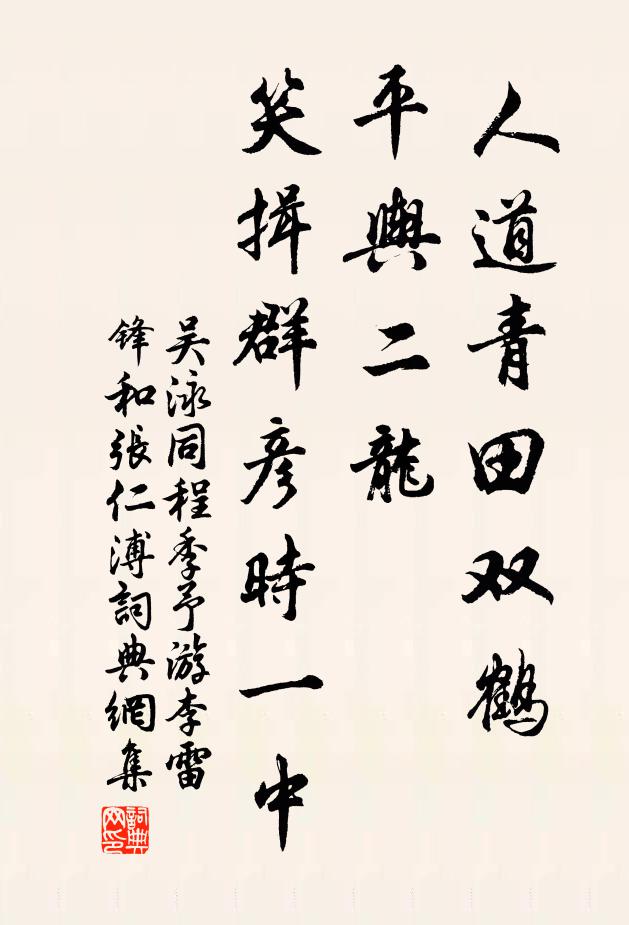 人道青田双鹤
平輿二龍
笑揖群彦時一中
吴泳同程季予游李雷
鋒和張仁溥詞典網集
詞典
网印